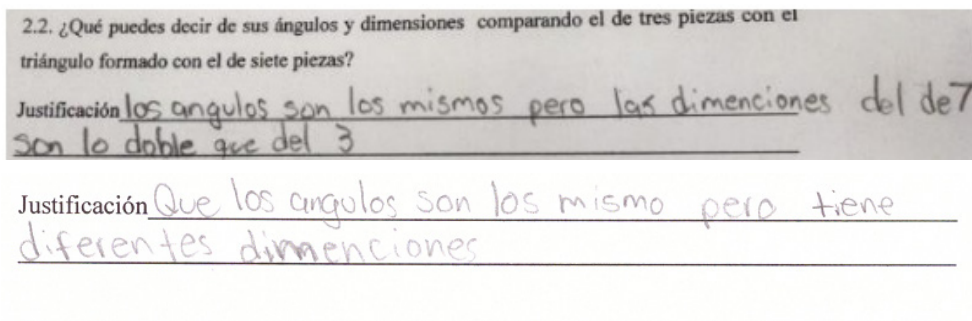 2.2. ¿Qué puedes decir de sus ángulos y dimensiones comparando el de tres piezas con el
triángulo formado con el de siete piezas?
Justificación los angulos son los mismos pero las dimenciones del de 7
son lo doble que del 3
Justificación Que los angulos son los mismo pero tiene
diferentes dimenciones